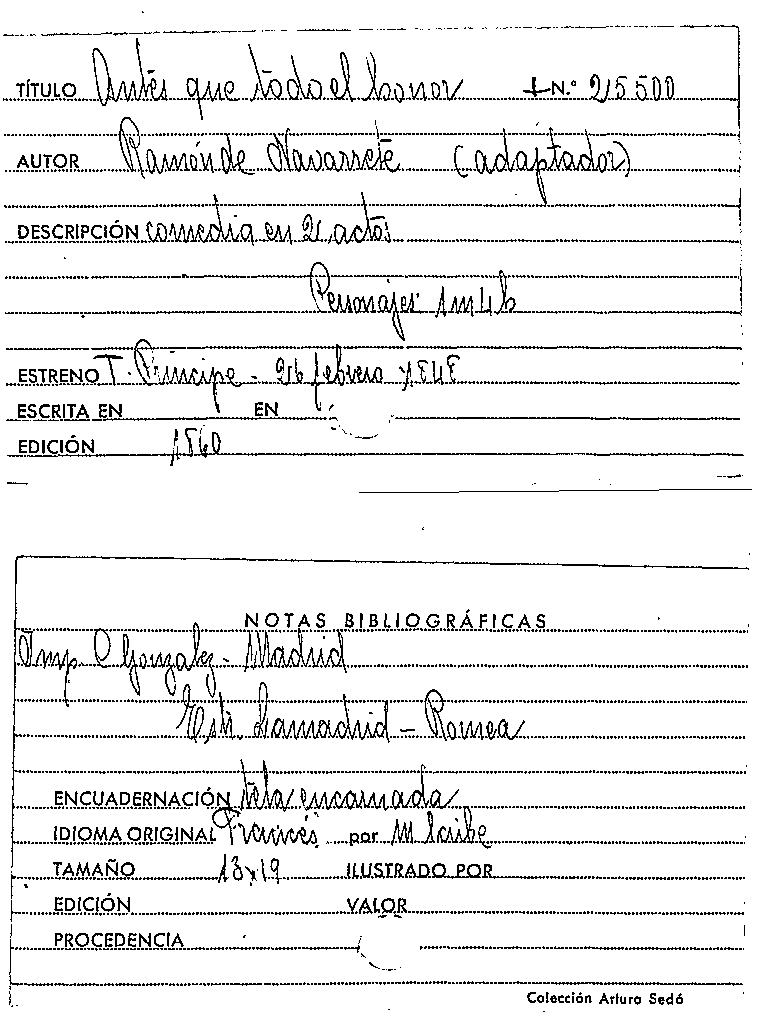 TÍTULO Antes que todo el honor N.º 25500
AUTOR Ramón de Navarrete (adaptador)
DESCRIPCIÓN comedia en 2 actos
Personajes: 1m 4h
ESTRENO T. Príncipe - 26 febrero 1848
ESCRITA EN EN
EDICIÓN 1860
NOTAS BIBLIOGRÁFICAS
Imp. C Gonzalez - Madrid
Estr. Lamadrid - Romea
ENCUADERNACIÓN tela encarnada
IDIOMA ORIGINAL Francés por M Scribe
TAMAÑO 13x19 ILUSTRADO POR
EDICIÓN VALOR
PROCEDENCIA
Colección Arturo Sedó